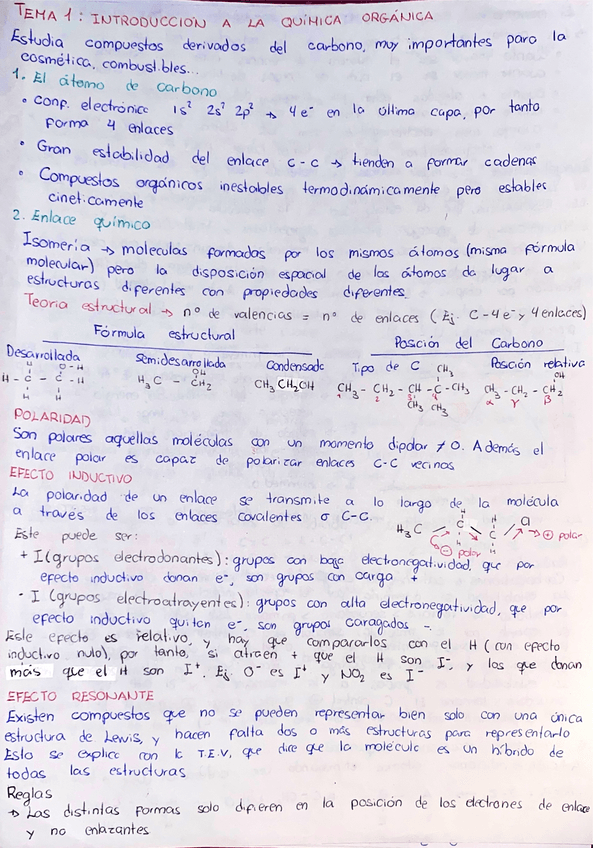 TEMA 1: INTRODUCCION A LA QUÍMICA ORGÁNICA
Estudia compuestos derivados del carbono, muy importantes para la
cosmética, combustibles...
1. El átomo de carbono
• Conf. electrónica 1s² 2s² 2p² → 4e⁻ en la última capa, por tanto
forma 4 enlaces
• Gran estabilidad del enlace C-C → tienden a formar cadenas
• Compuestos orgánicos inestables termodinámicamente pero estables
cineticamente
2. Enlace químico
Isomería → moleculas formadas por los mismos átomos (misma fórmula
molecular) pero la disposición espacial de los átomos da lugar a
estructuras diferentes con propiedades diferentes.
Teoria estructural → nº de valencias = nº de enlaces (Ej. C-4e⁻ y 4 enlaces)
Fórmula estructural Posción del Carbono
Desarrollada Semidesarrollada Condensada Tipo de C Posción relativa
H O-H OH CH₃ OH
H - C - C - H H₃C - CH₂ CH₃CH₂OH CH₃ - CH₂ - CH - C - CH₃ CH₃ - CH₂ - CH₂
H H CH₃ CH₃
POLARIDAD
Son polares aquellas moléculas con un momento dipolar ≠ 0. Además el
enlace polar es capaz de polarizar enlaces C-C vecinos
EFECTO INDUCTIVO
La polaridad de un enlace se transmite a lo largo de la molécula
a través de los enlaces covalentes σ C-C.
H H
H₃C C C Cl → ⊕ polar
H H
⊖ polar
Este puede ser:
+ I (grupos electrodonantes): grupos con baja electronegatividad, que por
efecto inductivo donan e⁻, son grupos con carga +
- I (grupos electroatrayentes): grupos con alta electronegatividad, que por
efecto inductivo quitan e⁻, son grupos caragados -.
Este efecto es relativo, y hay que compararlos con el H (con efecto
inductivo nulo), por tanto, si atraen + que el H son I⁻, y los que donan
más que el H son I⁺. Ej. O⁻ es I⁺ y NO₂ es I⁻
EFECTO RESONANTE
Existen compuestos que no se pueden representar bien solo con una única
estructura de Lewis, y hacen falta dos o más estructuras para representarlo
Esto se explica con la T.E.V, que dice que la molécula es un híbrido de
todas las estructuras
Reglas
→ Las distintas formas solo difieren en la posición de los electrones de enlace
y no enlazantes